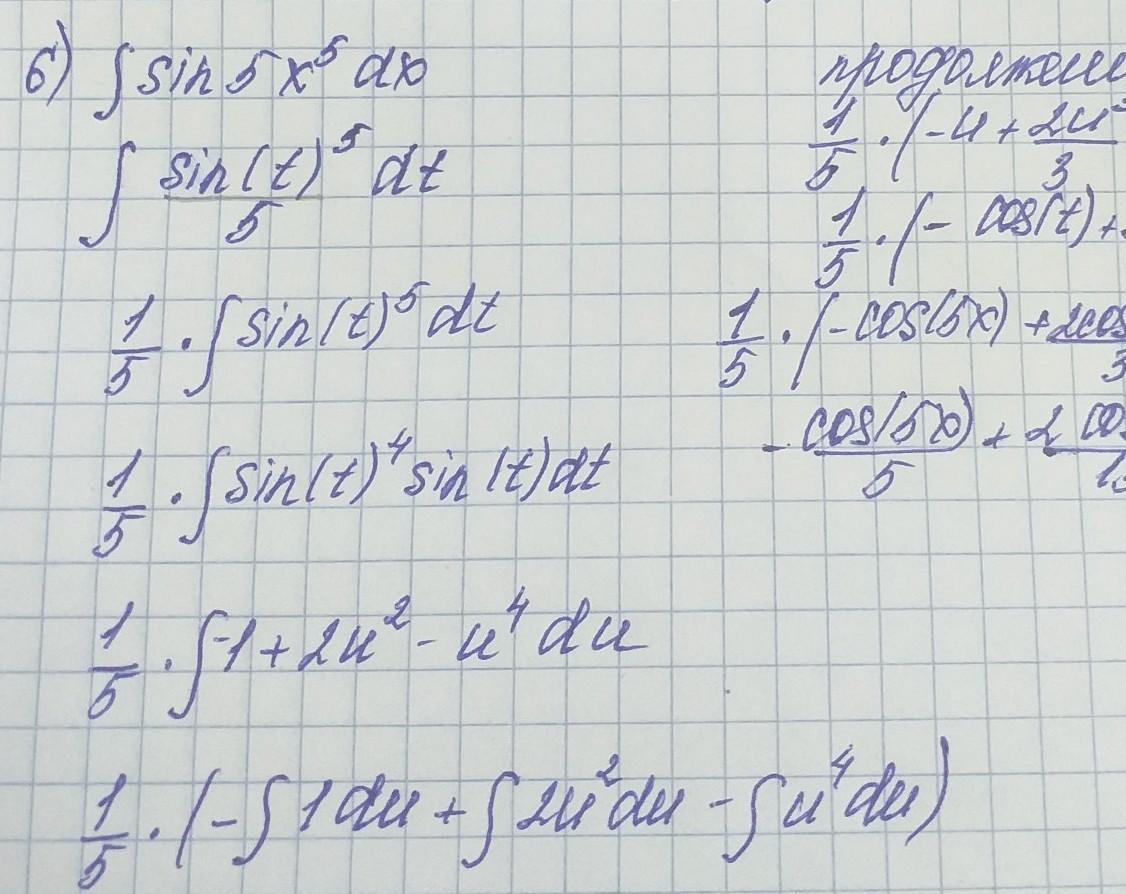 б) ∫ sin 5x⁵ dx
∫ sin(t)⁵/5 dt
1/5 · ∫ sin(t)⁵ dt
1/5 · ∫ sin(t)⁴ sin(t) dt
1/5 · ∫ -1 + 2u² - u⁴ du
1/5 · (-∫ 1 du + ∫ 2u² du - ∫ u⁴ du)
1/5 · (-u + 2u/3
1/5 · (- cos(t) +
1/5 · (-cos(5x) + 2cos/3
- cos(5x)/5 + 2